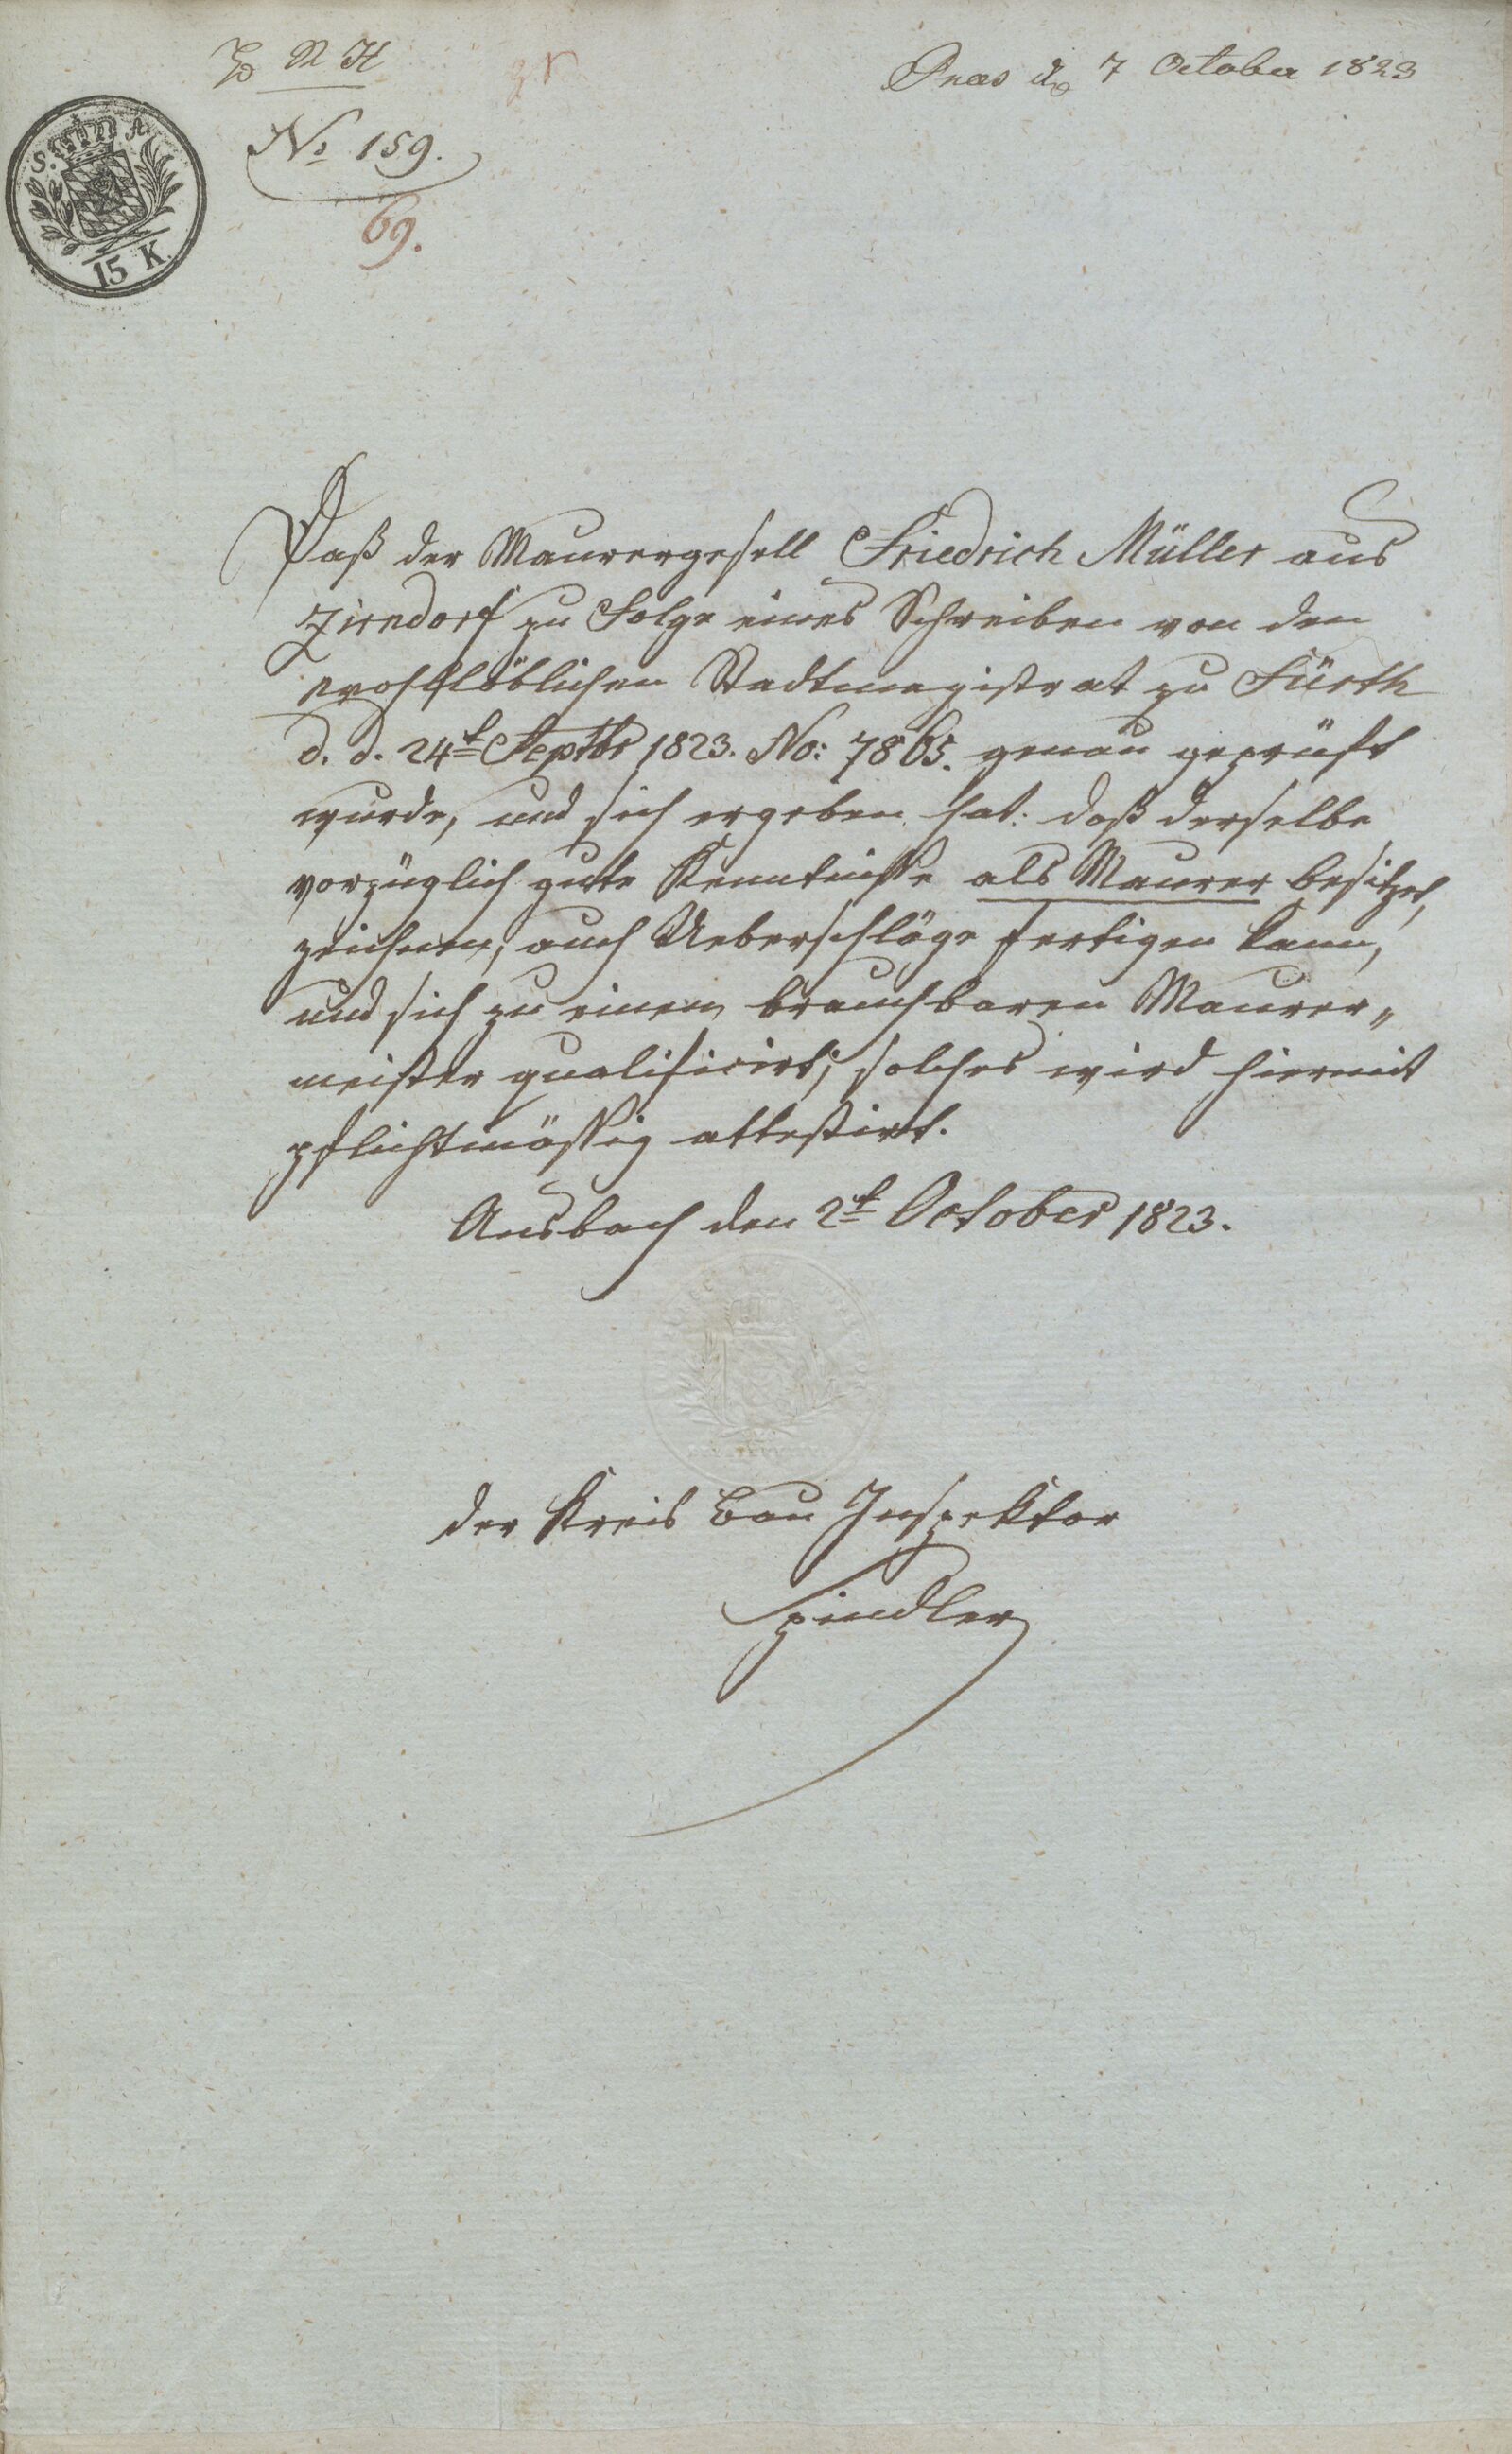 N H
Praes d 7 October 1823
S. A.
15 K.
No 159.
69.
Daß der Maurergesell Friedrich Müller aus
Zirndorf zu Folge eines Schreiben von den
wohllöblichen Stadtmagistrat zu Fürth
d. d. 24t Septbr 1823. No: 7865. genau geprüft
wurde, und sich ergeben hat: daß derselbe
vorzüglich gute Kenntniße als Maurer besitzet,
zeichnen, auch Ueberschläge fertigen kann,
und sich zu einem brauchbaren Maurer„
meister qualificirt; solches wird hiermit
pflichtmäßig attestirt.
Ansbach den 2t October 1823.
der Kreis Bau Inspektor
Spindler